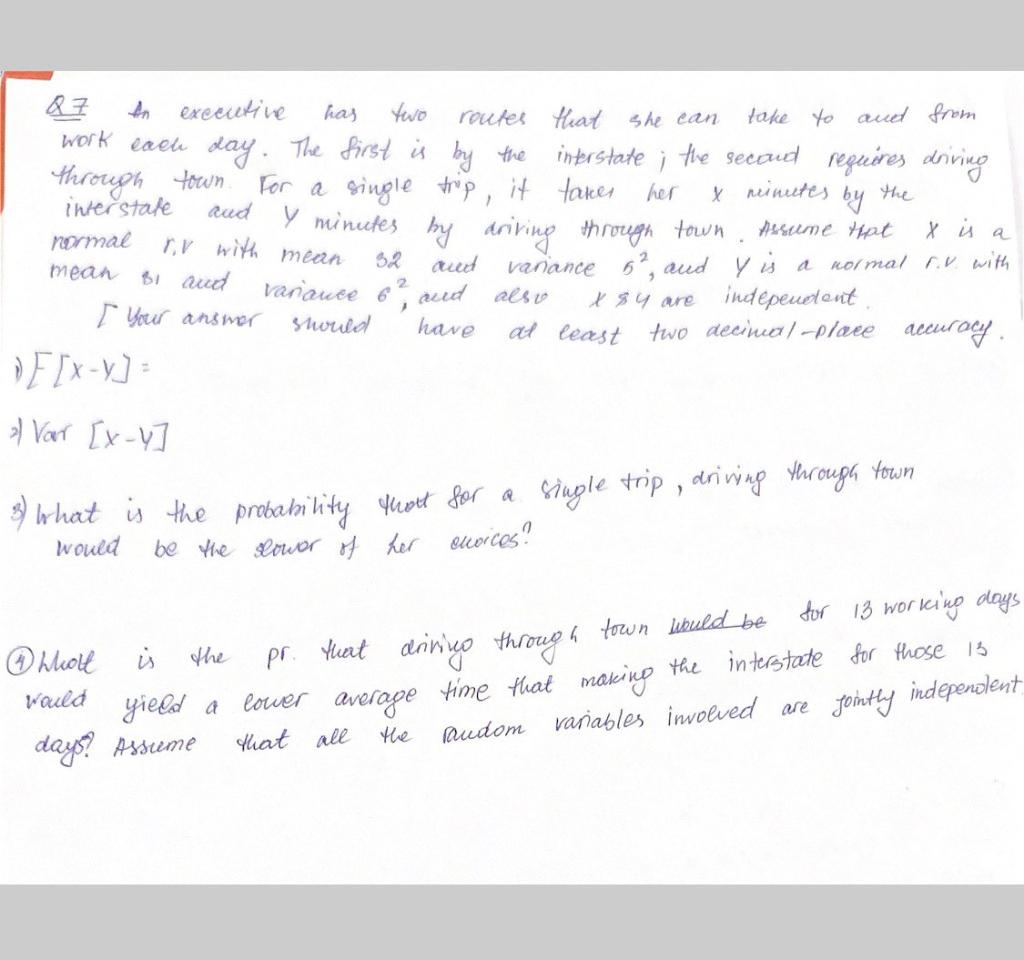 Q7 An executive has two routes that she can take to and from
work each day. The first is by the interstate ; the second requires driving
through town. For a single trip, it takes her X minutes by the
interstate and Y minutes by driving through town. Assume that X is a
normal r.v with mean 32 and variance 5², and Y is a normal r.v. with
mean 31 and variance 6², and also X & Y are independent.
[ Your answer should have at least two decimal-place accuracy.
1) E[X-Y] =
2) Var [X-Y]
3) What is the probability that for a single trip, driving through town
would be the slower of her choices?
④ What is the pr. that driving through town would be for 13 working days
would yield a lower average time that making the interstate for those 13
days? Assume that all the random variables involved are jointly independent.